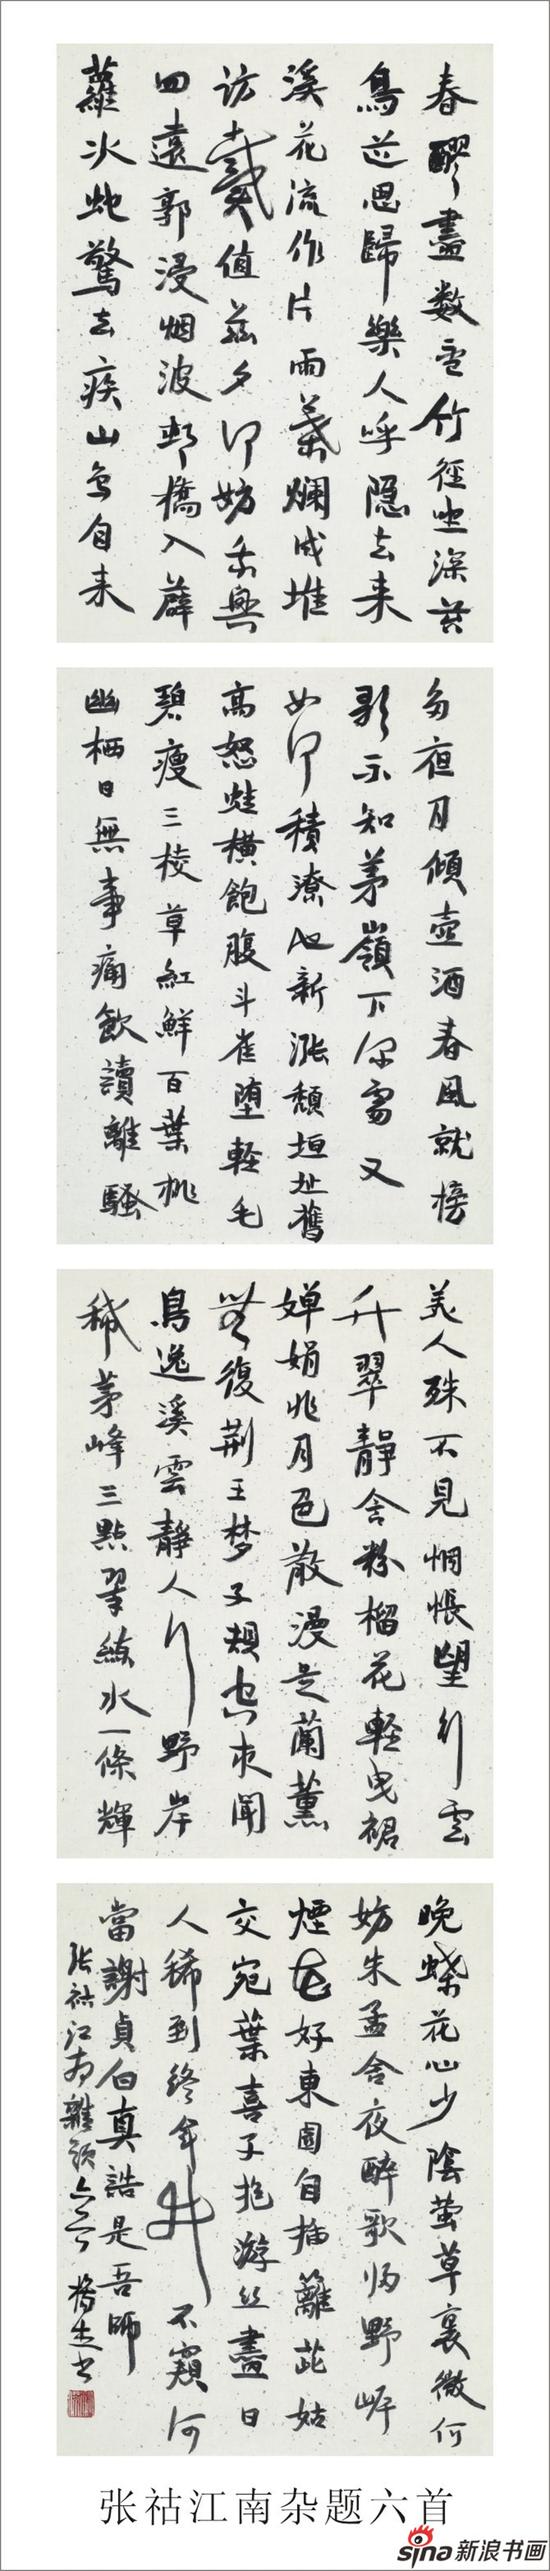 春醪盡數竹徑坐深苔
鳥思歸樂人呼隐去来
溪花流作片雨葉爛成堆
访戴值兹夕何妨乘興
回遠郭浸烟波邨橋入薜
蘿水蛇驚去疾山鳥自来
多夜月傾壺酒春風就榜
歌不知茅嶺下深處又
如何積潦池新漲頹垣址舊
高怒蛙橫飽腹斗雀堕輕毛
碧瘦三棱草紅鮮百葉桃
幽栖日無事痛飲讀離騷
美人殊不見惆悵望行雲
竹翠靜含粉榴花輕曳裙
嬋娟非月色散漫是蘭薰
無復荊王梦子規空夜聞
鳥逸溪雲靜人行野岸
稀茅峰三點翠練水一條輝
晚蝶花心少陰螢草裏微何
妨朱孟舍夜醉歌归野岸
煙花好東園自插籬茈姑
交宛葉喜子抱游丝盡日
人稀到終年井不窺何
當謝貞白真誥是吾師
张祜江南雜题六首 书
张祜江南杂题六首
sina新浪书画